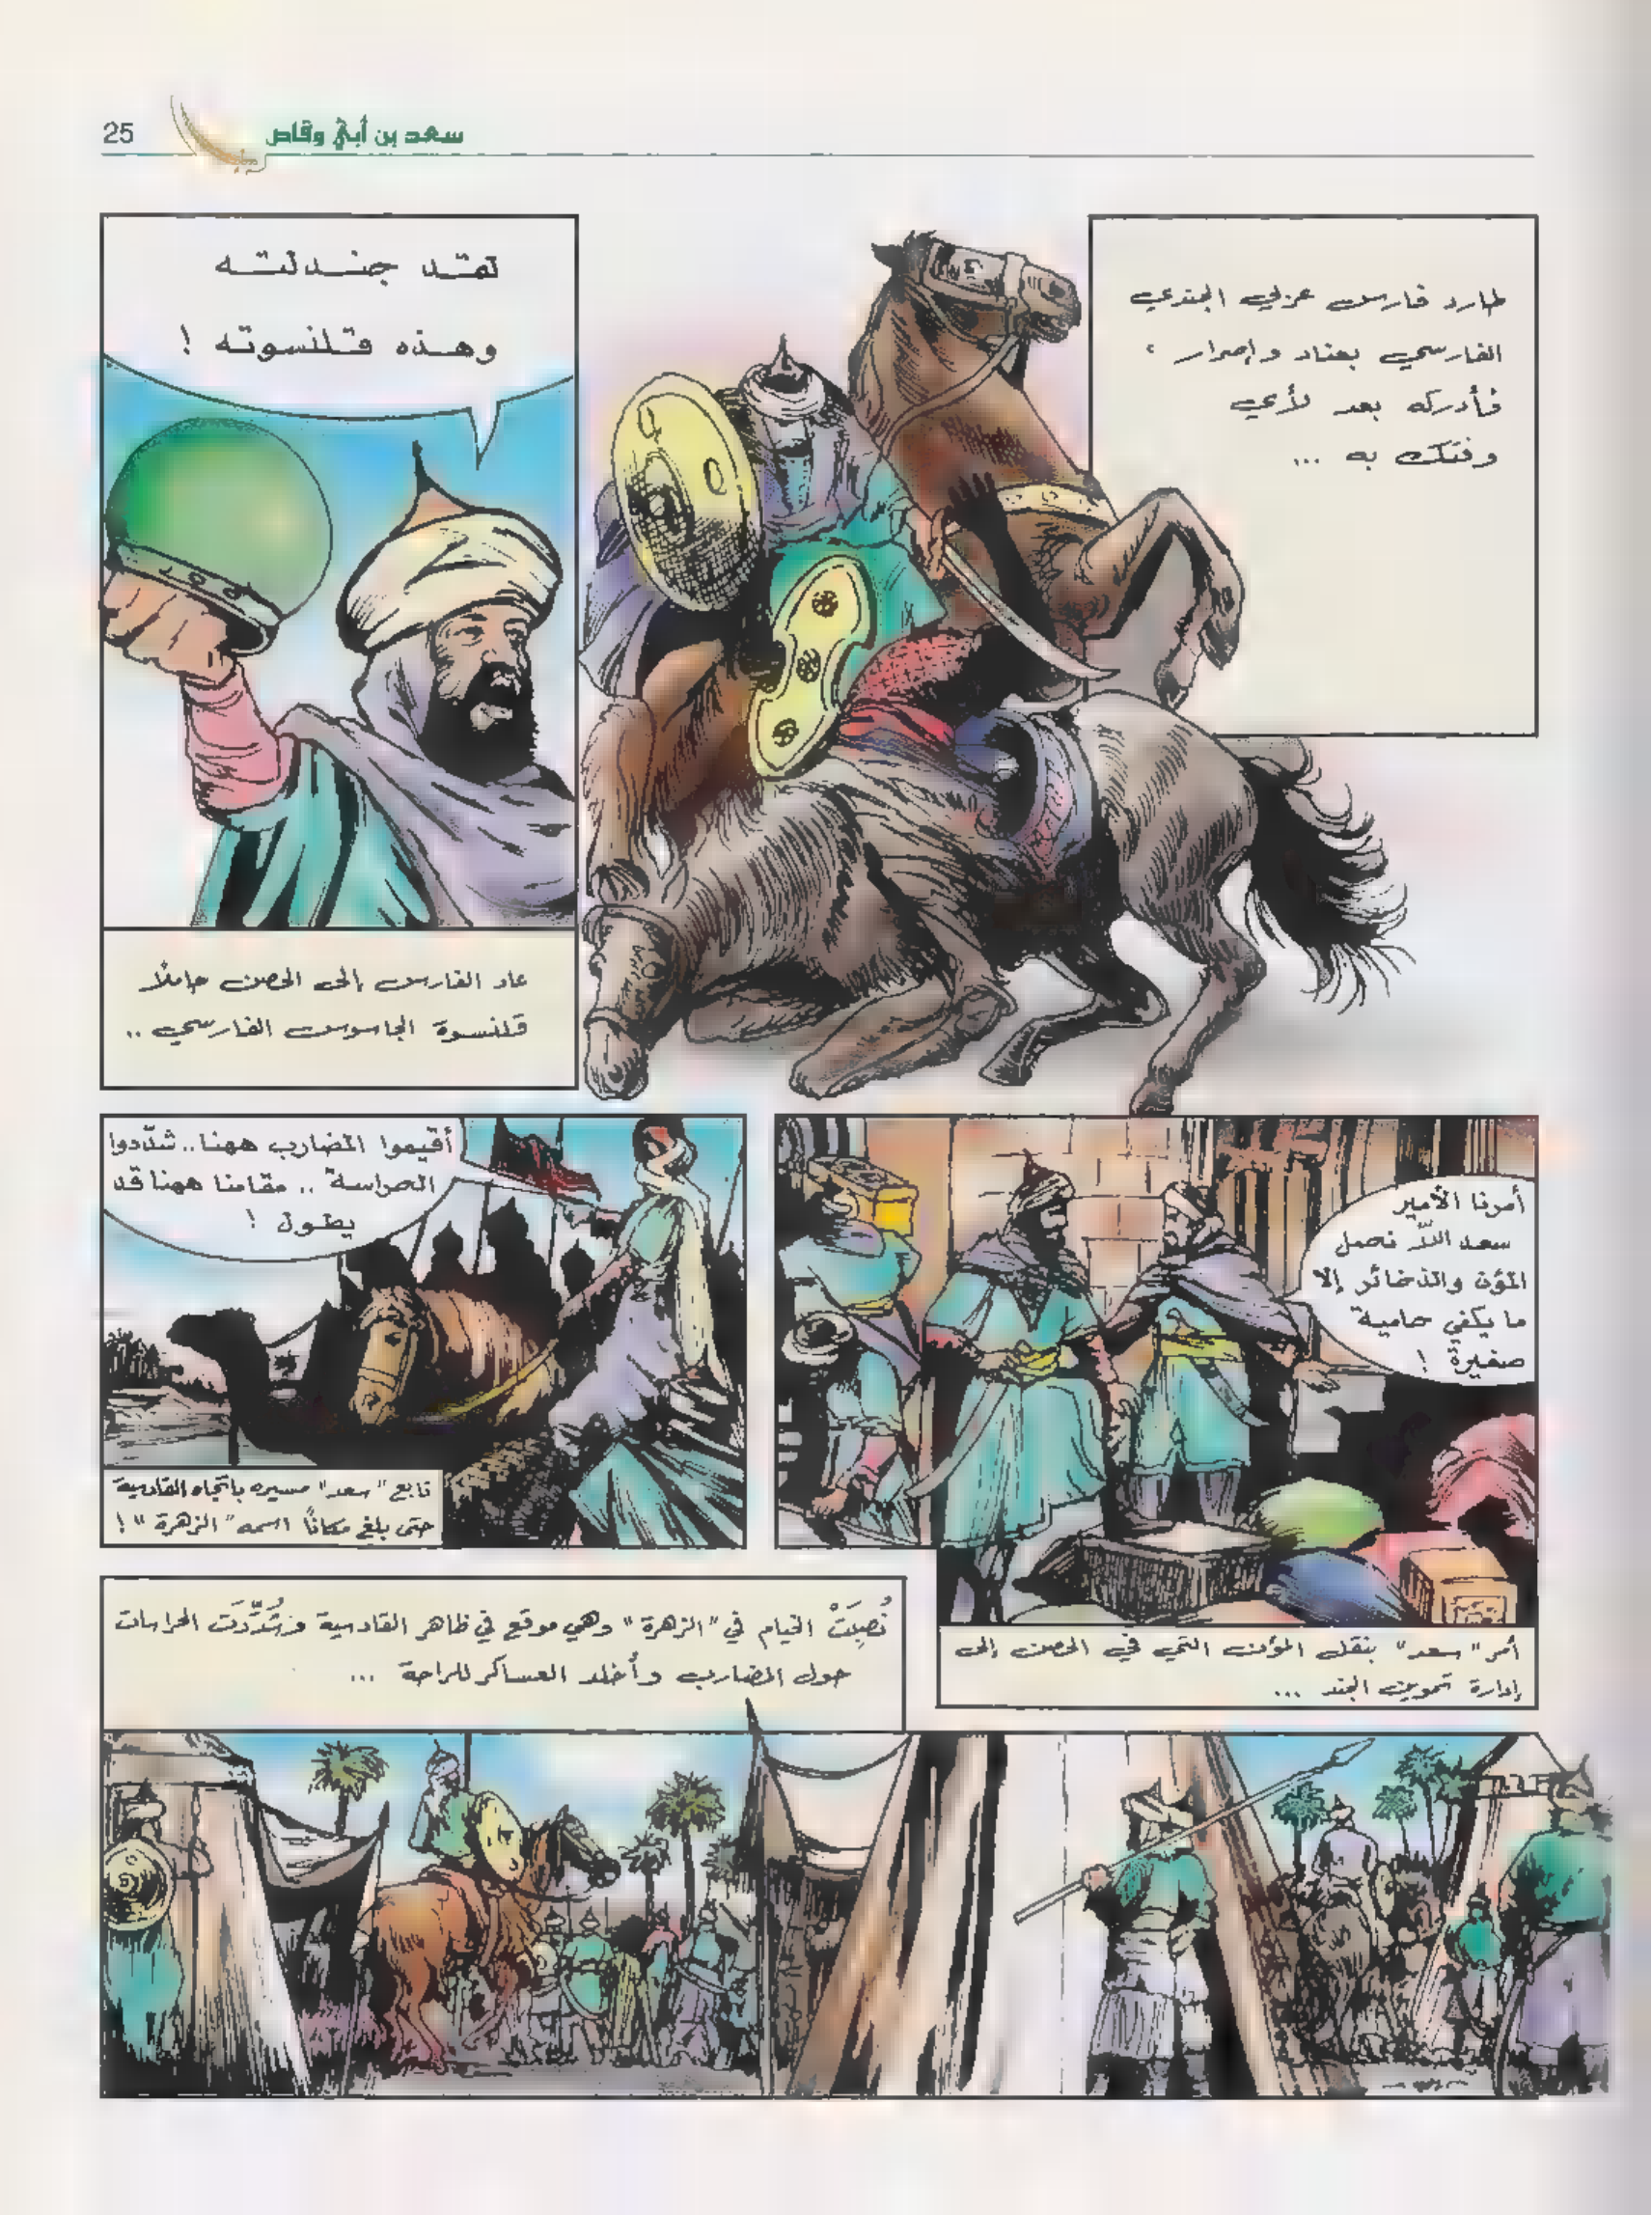 سعد بن أبي وقاص
25
طارد فارس عربي الجندي
الفارسي بعناد وإصرار ،
فأدركه بعد لأي
وفتك به ...
لقد جندلته
وهذه قلنسوته !
عاد الفارس إلى الحصن حاملاً
قلنسوة الجاسوس الفارسي ..
أمرنا الأمير
سعد ألاّ نحمل
المؤن والذخائر إلا
ما يكفي حامية
صغيرة !
أمر "سعد" بنقل المؤن التي في الحصن إلى
إدارة تموين الجند ...
أقيموا المضارب ههنا.. شدّدوا
الحراسة .. مقامنا ههنا قد
يطول !
تابع "سعد" مسيره باتجاه القادسية
حتى بلغ مكاناً اسمه "الزهرة" !
نُصِبَتْ الخيام في "الزهرة" وهي موقع في ظاهر القادسية وشُدِّدَت الحراسات
حول المضارب وأخلد العساكر للراحة ...